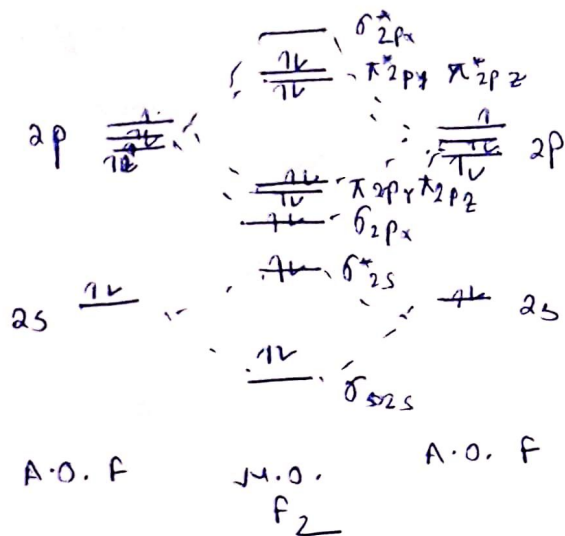 σ*2px
π*2py π*2pz
2p 2p
π2py π2pz
σ2px
σ*2s
2s 2s
σ2s
A.O. F M.O. A.O. F
F2